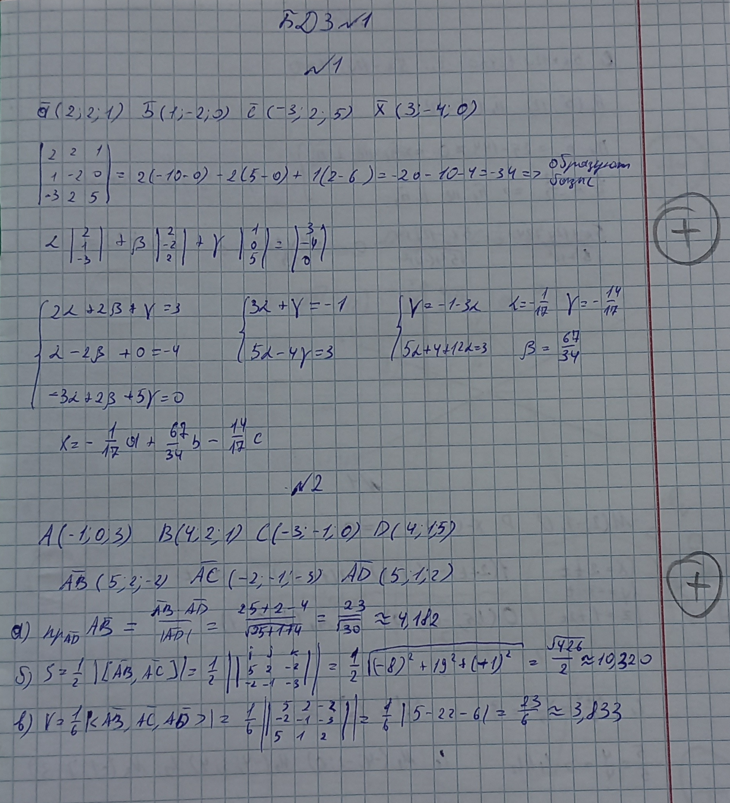 БДЗ №1
№1
a̅(2; 2; 1) b̅(1; -2; 0) c̅(-3; 2; 5) x̅(3; -4; 0)
|2 2 1; 1 -2 0; -3 2 5| = 2(-10-0) - 2(5-0) + 1(2-6) = -20-10-4 = -34 => образуют базис
α |2; 1; -3| + β |2; -2; 2| + γ |1; 0; 5| = |3; -4; 0|
{2α + 2β + γ = 3 {3α + γ = -1 {γ = -1-3α α = -1/17 γ = -14/17
α - 2β + 0 = -4 5α - 4γ = 3 5α+4+12α=3 β = 67/34
-3α + 2β + 5γ = 0
x = -1/17 a + 67/34 b - 14/17 c
№2
A(-1; 0; 3) B(4; 2; 1) C(-3; -1; 0) D(4; 1; 5)
A̅B̅(5; 2; -2) A̅C̅(-2; -1; -3) A̅D̅(5; 1; 2)
а) пр_AD A̅B̅ = A̅B̅ A̅D̅/|A̅D̅| = 25+2-4/√25+1+4 = 23/√30 ≈ 4,182
б) S = 1/2 |[A̅B̅, A̅C̅]| = 1/2 ||i j k; 5 2 -2; -2 -1 -3|| = 1/2 √(-8)² + 19² + (-1)² = √426/2 ≈ 10,320
в) V = 1/6 |<A̅B̅, A̅C̅, A̅D̅>| = 1/6 ||5 2 -2; -2 -1 -3; 5 1 2|| = 1/6 |5-22-6| = 23/6 ≈ 3,833
+
+